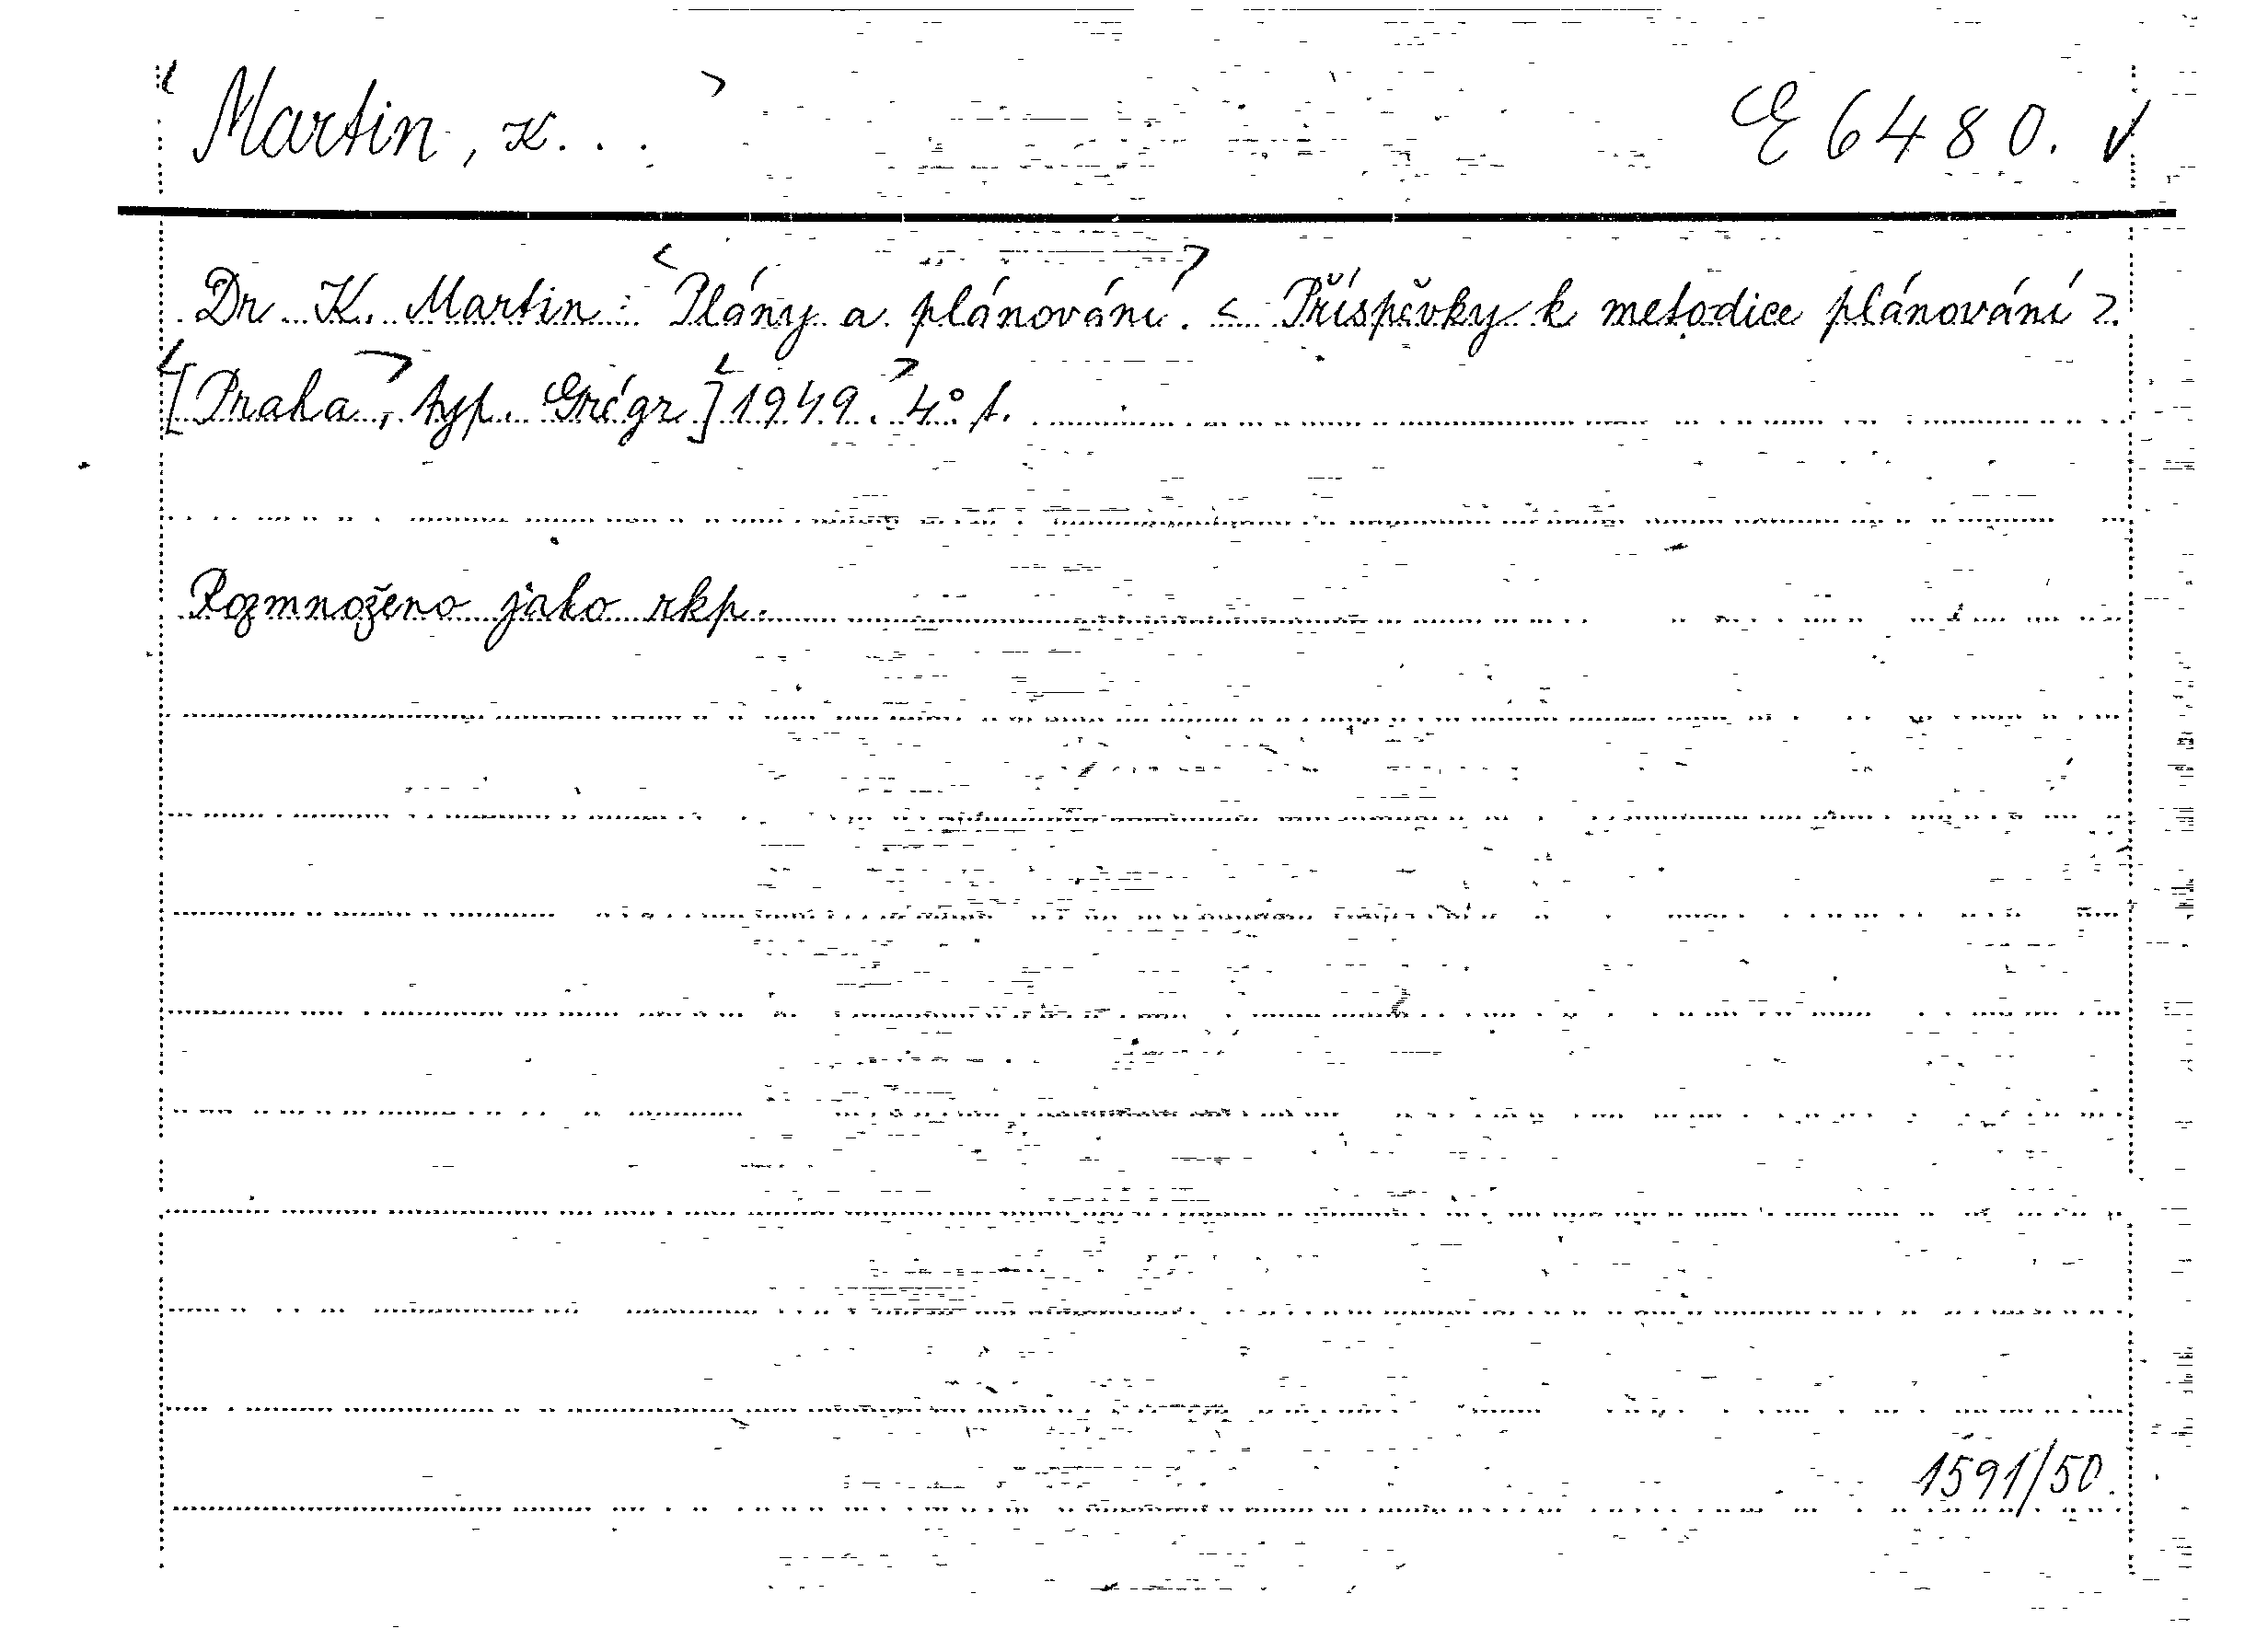 Martin, K... E 6480.
Dr. K. Martin: Plány a plánování. < Příspěvky k metodice plánování >.
[Praha, typ. Grégr] 1949. 4° f.
Rozmnoženo jako rkp.
1591/50.